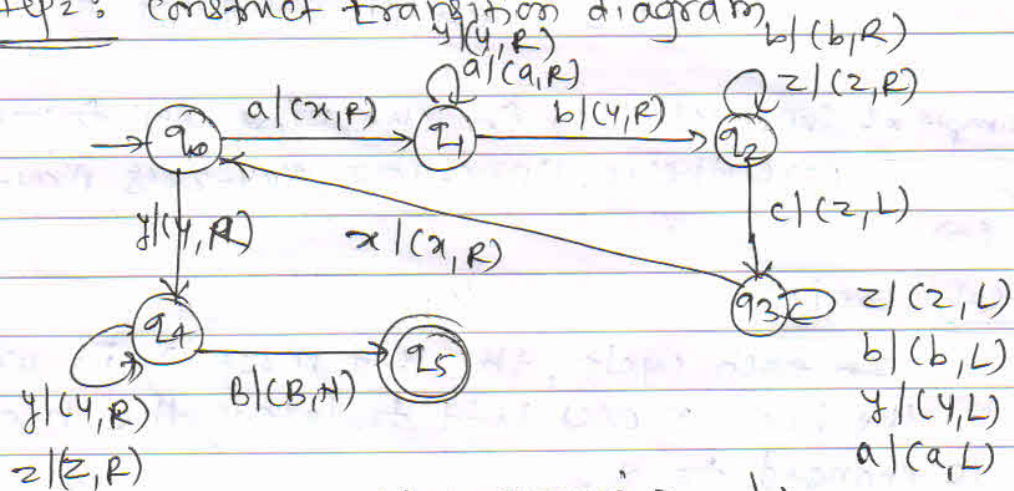 Step2: Construct transition diagram
y|(y,R)
a|(a,R)
b|(b,R)
z|(z,R)
q0
a|(x,R)
q1
b|(y,R)
q2
y|(y,R)
x|(x,R)
c|(z,L)
q3
z|(z,L)
b|(b,L)
y|(y,L)
a|(a,L)
q4
B|(B,H)
q5
y|(y,R)
z|(z,R)